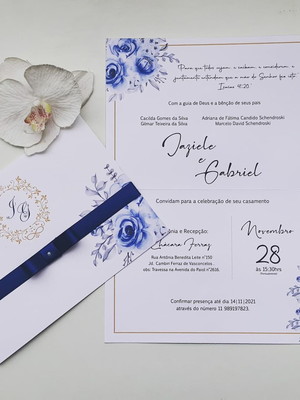 Para que todos vejam, e saibam, e considerem, e
juntamente entendam que a mão do Senhor fez isto
Isaías 41:20
Com a guia de Deus e a bênção de seus pais
Cacilda Gomes da Silva
Gilmar Teixeira da Silva
Adriana de Fátima Candido Schendroski
Marcelo David Schendroski
Jaziele
e
Gabriel
Convidam para a celebração de seu casamento
ônia e Recepção:
Chácara Ferraz
Rua Antônia Benedita Leite nº350
Jd. Cambiri Ferraz de Vasconcelos
obs: Travessa na Avenida do Paiol nº2826.
Novembro
28
às 15:30hrs
Confirmar presença até dia 14|11|2021
através do número 11 989197823.
J G